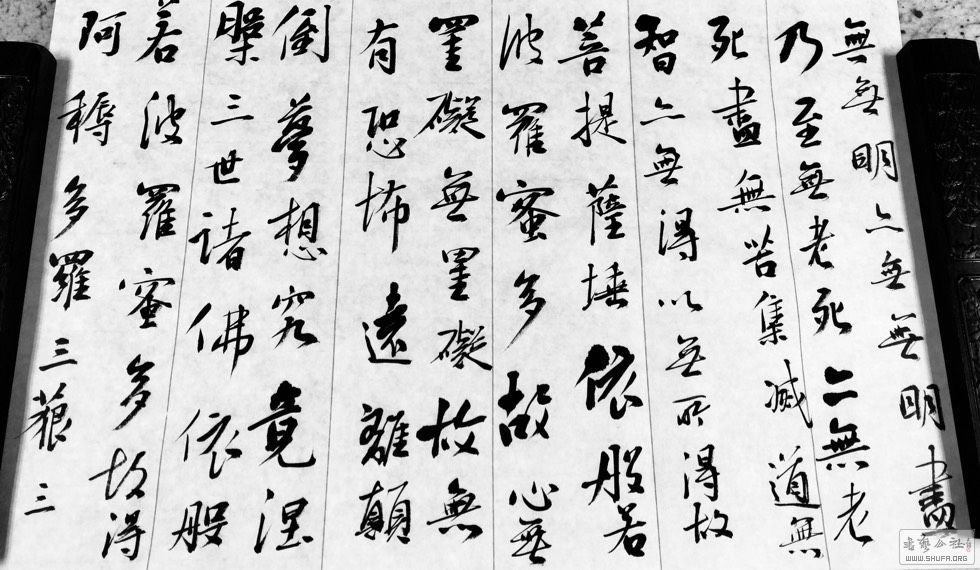 無無明亦無無明盡
乃至無老死亦無老
死盡無苦集滅道無
智亦無得以無所得故
菩提薩埵依般若
波羅蜜多故心無
罣礙無罣礙故無
有恐怖遠離顛
倒夢想究竟涅
槃三世諸佛依般
若波羅蜜多故得
阿耨多羅三藐三
書藝公社
WWW.SHUFA.ORG